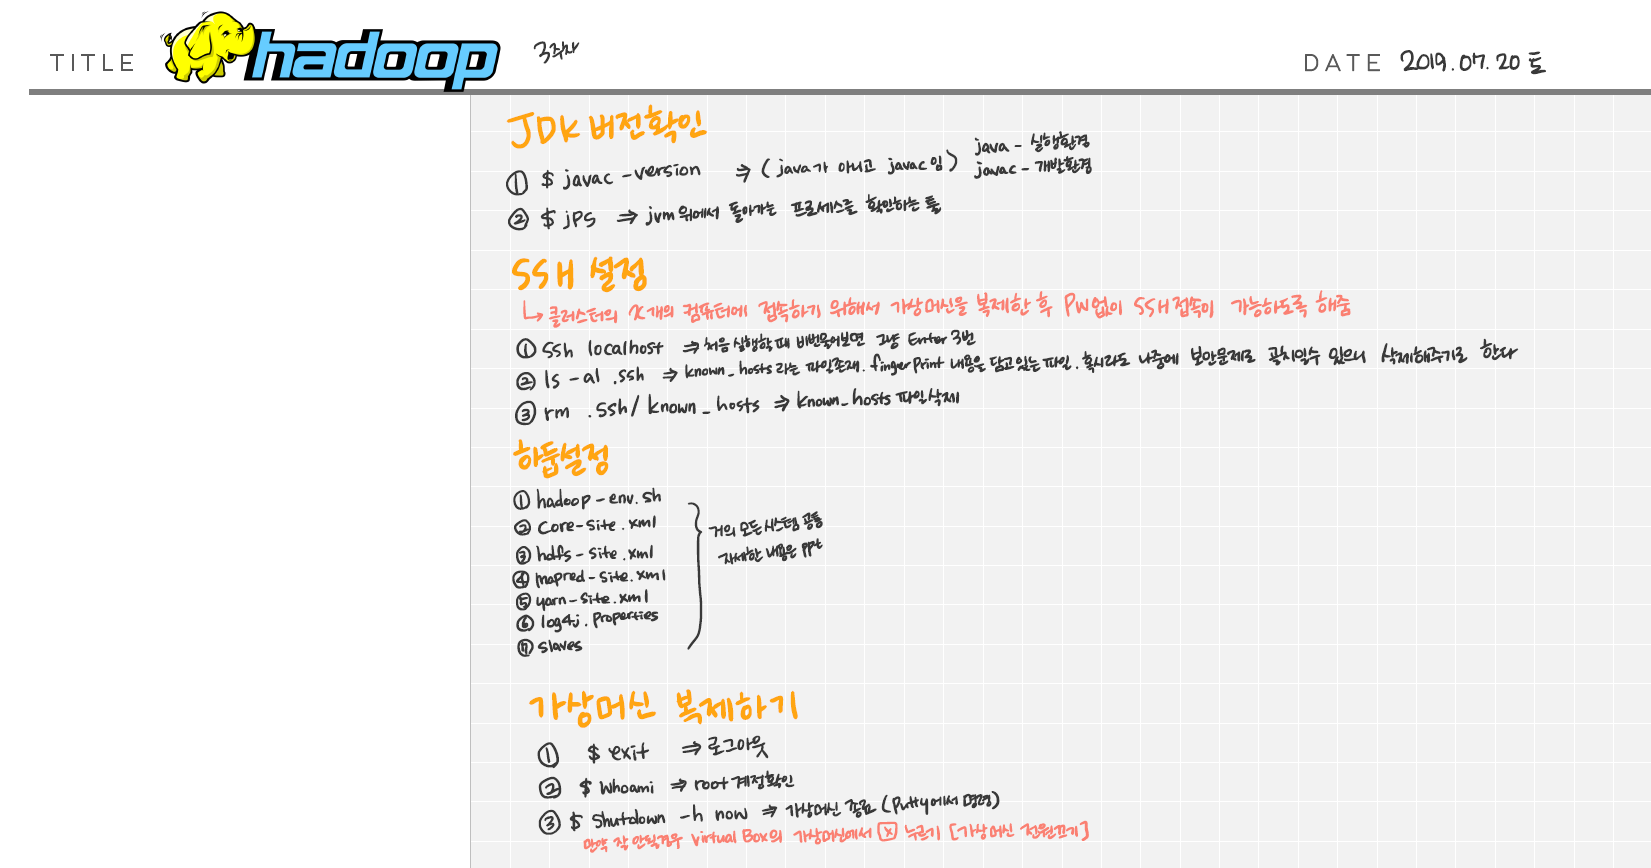 TITLE hadoop 3주차 DATE 2019.07.20 토
JDK 버전확인
① $ javac -version ⇒ (java가 아니고 javac임) java - 실행환경
javac - 개발환경
② $ jps ⇒ jvm위에서 돌아가는 프로세스를 확인하는 툴
SSH 설정
↳ 클러스터의 x개의 컴퓨터에 접속하기 위해서 가상머신을 복제한 후 PW없이 SSH접속이 가능하도록 해줌
① ssh localhost ⇒ 처음 실행할때 비번물어보면 그냥 Enter 3번
② ls -al .ssh ⇒ known_hosts 라는 파일존재. finger Print 내용을 담고있는 파일. 혹시라도 나중에 보안문제로 골치일수 있으니 삭제해주기로 한다
③ rm .ssh/known_hosts ⇒ known_hosts 파일삭제
하둡설정
① hadoop-env.sh
② core-site.xml 거의 모든시스템 공통
③ hdfs-site.xml 자세한 내용은 ppt
④ mapred-site.xml
⑤ yarn-site.xml
⑥ log4j.properties
⑦ slaves
가상머신 복제하기
① $ exit ⇒ 로그아웃
② $ whoami ⇒ root계정확인
③ $ Shutdown -h now ⇒ 가상머신 종료 (Putty에서 명령)
만약 잘 안될경우 Virtual Box의 가상머신에서 [X] 누르기 [가상머신 전원끄기]